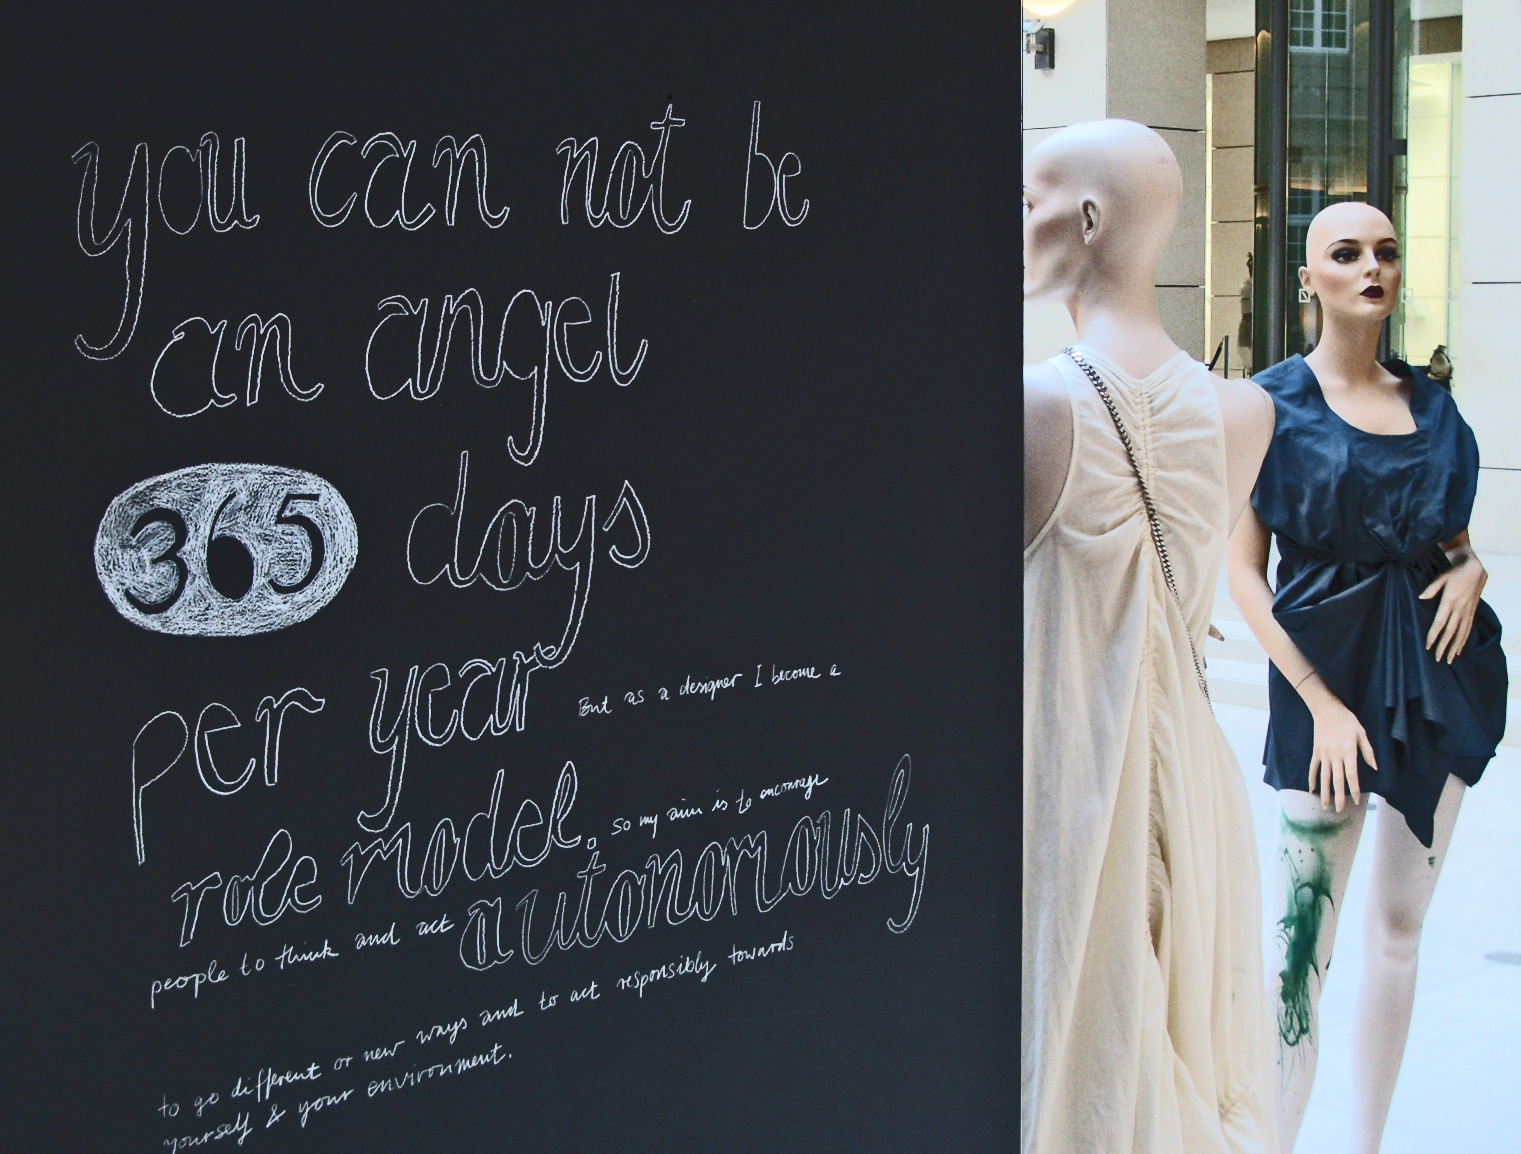 you can not be
an angel
365 days
per year But as a designer I become a
role model. so my aim is to encourage
people to think and act autonomously
to go different or new ways and to act responsibly towards
yourself & your environment.